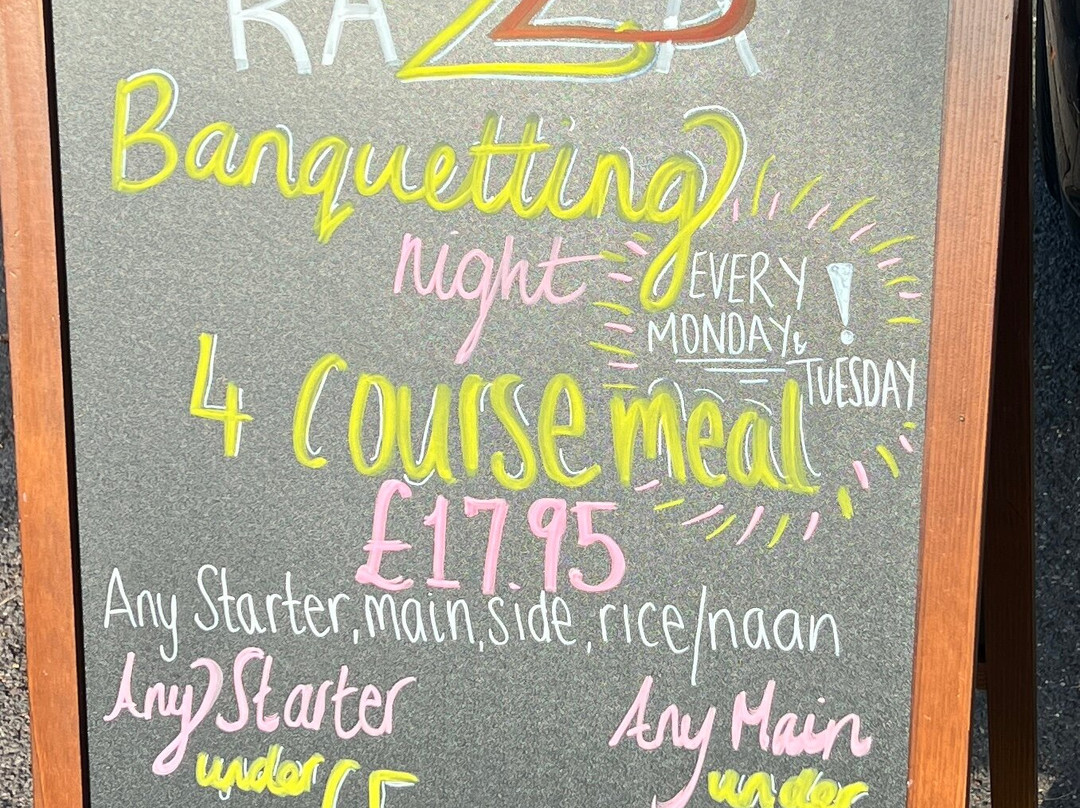 Banquetting
night
EVERY !
MONDAY &
TUESDAY
4 course meal
£17.95
Any Starter, main, side, rice/naan
Any Starter
under £5
Any Main
under